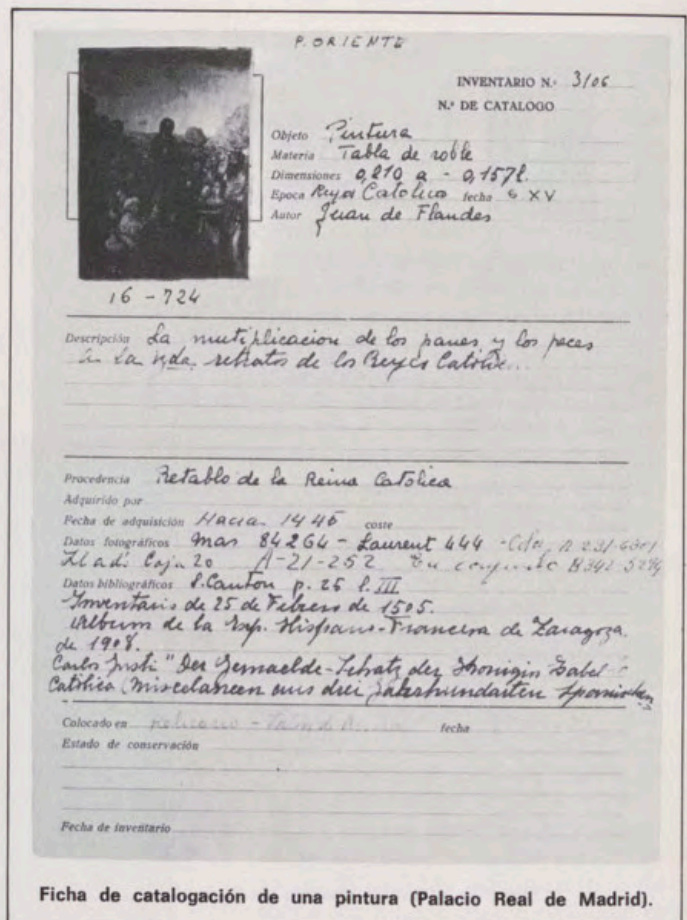 P. ORIENTE
INVENTARIO N.º 3/06
N.º DE CATALOGO
Objeto Pintura
Materia Tabla de roble
Dimensiones 0,210 a - 0,157 l.
Epoca Reyes Catolicos fecha S XV
Autor Juan de Flandes
16 - 724
Descripción La multiplicacion de los panes y los peces
a la retratos de los Reyes Católic...
Procedencia Retablo de la Reina Catolica
Adquirido por
Fecha de adquisición Hacia 1445 coste
Datos fotográficos Mas 84264 - Laurent 444
Caja 20 A-21-252 En conjunto B342
Datos bibliográficos S. Canton p. 26 l. III
Inventario de 25 de Febrero de 1505.
Album de la Exp. Hispano-Francesa de Zaragoza
de 1908.
Carlos Justi "Der Gemaelde-Schatz der Konigin Isabel
Católica (Miscelaneen aus drei Jahrhunderten Spanischen
Colocado en relicario fecha
Estado de conservación
Fecha de inventario
Ficha de catalogación de una pintura (Palacio Real de Madrid).